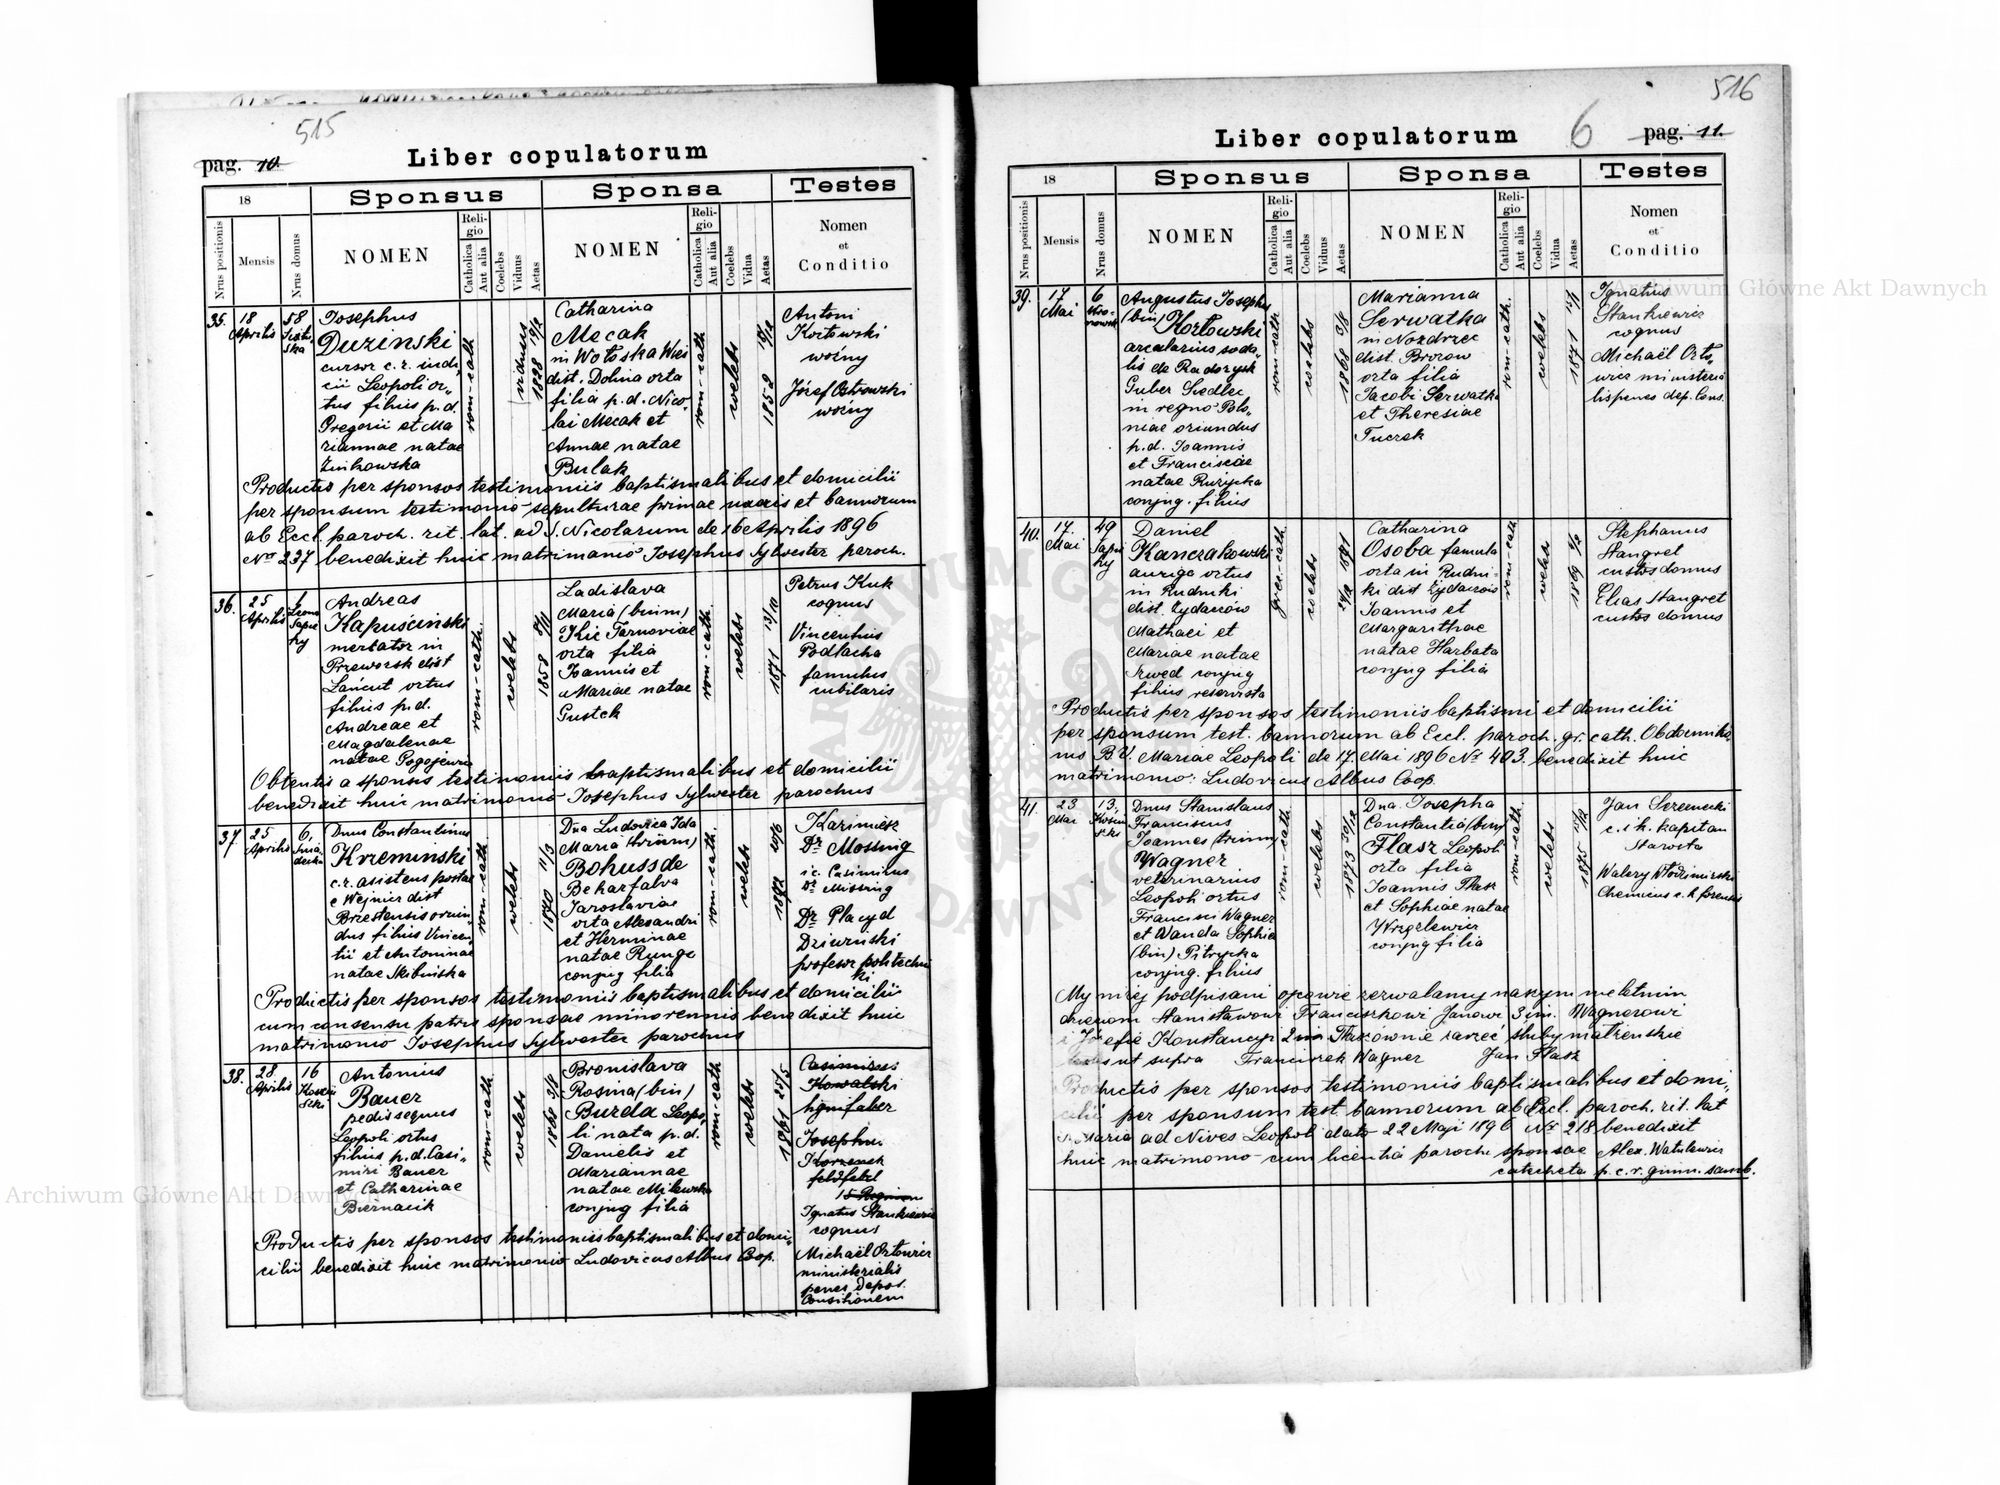 515
pag. 10.
Liber copulatorum
18
Sponsus
Sponsa
Testes
Nrus positionis
Mensis
Nrus domus
NOMEN
Religio
Catholica
Aut alia
Coelebs
Viduus
Aetas
NOMEN
Religio
Catholica
Aut alia
Coelebs
Vidua
Aetas
Nomen
et
Conditio
35.
18
Aprilis
58
Josephus
Duzinski
cursor c.r. indi-
cii Leopoli or-
tus filius p.d.
Gregorii et Ma
riannae natae
rom-cath
viduus
1828
Catharina
Mecak
in Wołoska Wieś
dist. Dolina orta
filia p.d. Nico-
lai Mecak et
Annae natae
Bulak
rom-cath
coelebs
1852
Antoni
Kozłowski
woźny
Józef Ostrowski
woźny
Productis per sponsos testimoniis baptismalibus et domicilii
per sponsum testimonio sepulturae primae uxoris et bannorum
ab Eccl. paroch. rit. lat. ad S. Nicolarum de 16 Aprilis 1896
No 237 benedixit huic matrimonio Josephus Sylwester paroch.
36.
25
Aprilis
1
Leona
Sapie
hy
Andreas
Kapuscinski
mercator in
Przeworsk dist
Łańcut ortus
filius p.d.
Andreae et
Magdalenae
natae
rom-cath.
coelebs
1858
Ladislava
Maria (binim)
Kic Tarnoviae
orta filia
Joannis et
Mariae natae
Gustek
rom-cath.
coelebs
1871 13/10
Petrus Kuk
coquus
Vincentius
Podlacha
famulus
iubilaris
Obtentis a sponsis testimoniis baptismalibus et domicilii
benedixit huic matrimonio Josephus Sylwester parochus
37
25
Aprilis
6.
Dnus Constantinus
Krzeminski
c.r. asistens postae
e Wejnier dist
Brzestensis oriun-
dus filius Vincen-
tii et Antoninae
natae Skibinska
rom-cath
coelebs
1840 11/3
Dna Ludovica Ida
Maria (trium)
Bohuss de
Bekarfalva
Jaroslaviae
orta Alexandri
et Herminae
natae Runge
conjug filia
rom-cath.
coelebs
1872 20/6
Kazimierz
Dr Mossing
i.c. Casimirus
Dr Mossing
Dr Placyd
Dziwinski
profesor politechni
ki
Productis per sponsos testimoniis baptismalibus et domicilii
cum consensu patris sponsae minorennis benedixit huic
matrimonio Josephus Sylwester parochus
38.
28
Aprilis
16
Antonius
Bauer
pedissequus
Leopoli ortus
filius p.d. Casi-
miri Bauer
et Catharinae
Biernacik
rom-cath
coelebs
1868
Bronislava
Rosina (bin)
Burda Leopo-
li nata p.d.
Danielis et
Mariannae
natae Milewska
conjug filia
rom-cath
coelebs
1861 25/5
Casimirus
Kowalski
lignifaber
Josephus
Korzenek
feldfebel
Ignatus Stankiewicz
coquus
Michaël Ortowicz
ministerialis
penes Depos.
Productis per sponsos testimoniis baptismalibus et domi-
cilii benedixit huic matrimonio Ludovicus Albus Coop.
516
6
pag. 11.
Liber copulatorum
18
Sponsus
Sponsa
Testes
Nrus positionis
Mensis
Nrus domus
NOMEN
Religio
Catholica
Aut alia
Coelebs
Viduus
Aetas
NOMEN
Religio
Catholica
Aut alia
Coelebs
Vidua
Aetas
Nomen
et
Conditio
39.
17
Mai
6
Augustus Josephus
(bin) Kozłowski
arcularius soda-
lis de Radoryk
Guber Siedlec
in regno Polo-
niae oriundus
p.d. Joannis
et Franciscae
natae Ruzycka
conjug. filius
rom-cath
coelebs
1868 3/8
Marianna
Serwatka
in Nozdrzec
dist. Brzozow
orta filia
Jacobi Serwatka
et Theresiae
Tuczek
rom-cath.
coelebs
1871
Ignatius
Stankiewicz
coquus
Michaël Orto-
wicz ministeria
lis penes dep. Cons.
40.
17.
Mai
49
Sapie
hy
Daniel
Kanczakowski
auriga ortus
in Rudniki
dist. Zydaczów
Mathaei et
Mariae natae
Szwed conjug
filius reservista
grec-cath.
coelebs
1871
Catharina
Osoba famula
orta in Rudni-
ki dist Zydaczów
Joannis et
Margarithae
natae Harbata
conjug filia
rom-cath
coelebs
1869
Stephanus
Stangret
custos domus
Elias Stangret
custos domus
Productis per sponsos testimoniis baptismi et domicilii
per sponsum test. bannorum ab Eccl. paroch. gr. cath. Obdormitio-
nis B.V. Mariae Leopoli de 17. Mai 1896 No 403. benedixit huic
matrimonio: Ludovicus Albus Coop.
41.
23
Mai
13.
Dnus Stanislaus
Franciscus
Joannes trinim
Wagner
veterinarius
Leopoli ortus
Francisci Wagner
et Wanda Sophia
(bin) Pitrycka
conjug. filius
rom-cath.
coelebs
1873 30/12
Dna Josepha
Constantia (bin)
Flasz Leopoli
orta filia
Joannis Flasz
et Sophiae natae
Wrzelewicz
conjug filia
rom-cath.
coelebs
1875
Jan Szremecki
c. i k. kapitan
Starosta
Walery Włodzimirski
Chemicus c.k. forensis
My niżej podpisani ojcowie zezwalamy naszym nieletnim
dzieciom Stanisławowi Franciszkowi Janowi 3 im. Wagnerowi
i Józefie Konstancyi 2 im Flaszównie zawrzeć śluby małżeńskie
ut supra Franciszek Wagner Jan Flasz
Productis per sponsos testimoniis baptismalibus et domi-
cilii per sponsum test. bannorum ab Eccl. paroch. rit. lat
S. Maria ad Nives Leopoli dato 22 Maji 1896 No 218 benedixit
huic matrimonio cum licentia parochi sponsae Alex. Watulewicz
catecheta p. c.r. gimn. samb.
Archiwum Główne Akt Dawnych
Archiwum Główne Akt Dawnych
ARCHIWUM GŁÓWNE AKT DAWNYCH